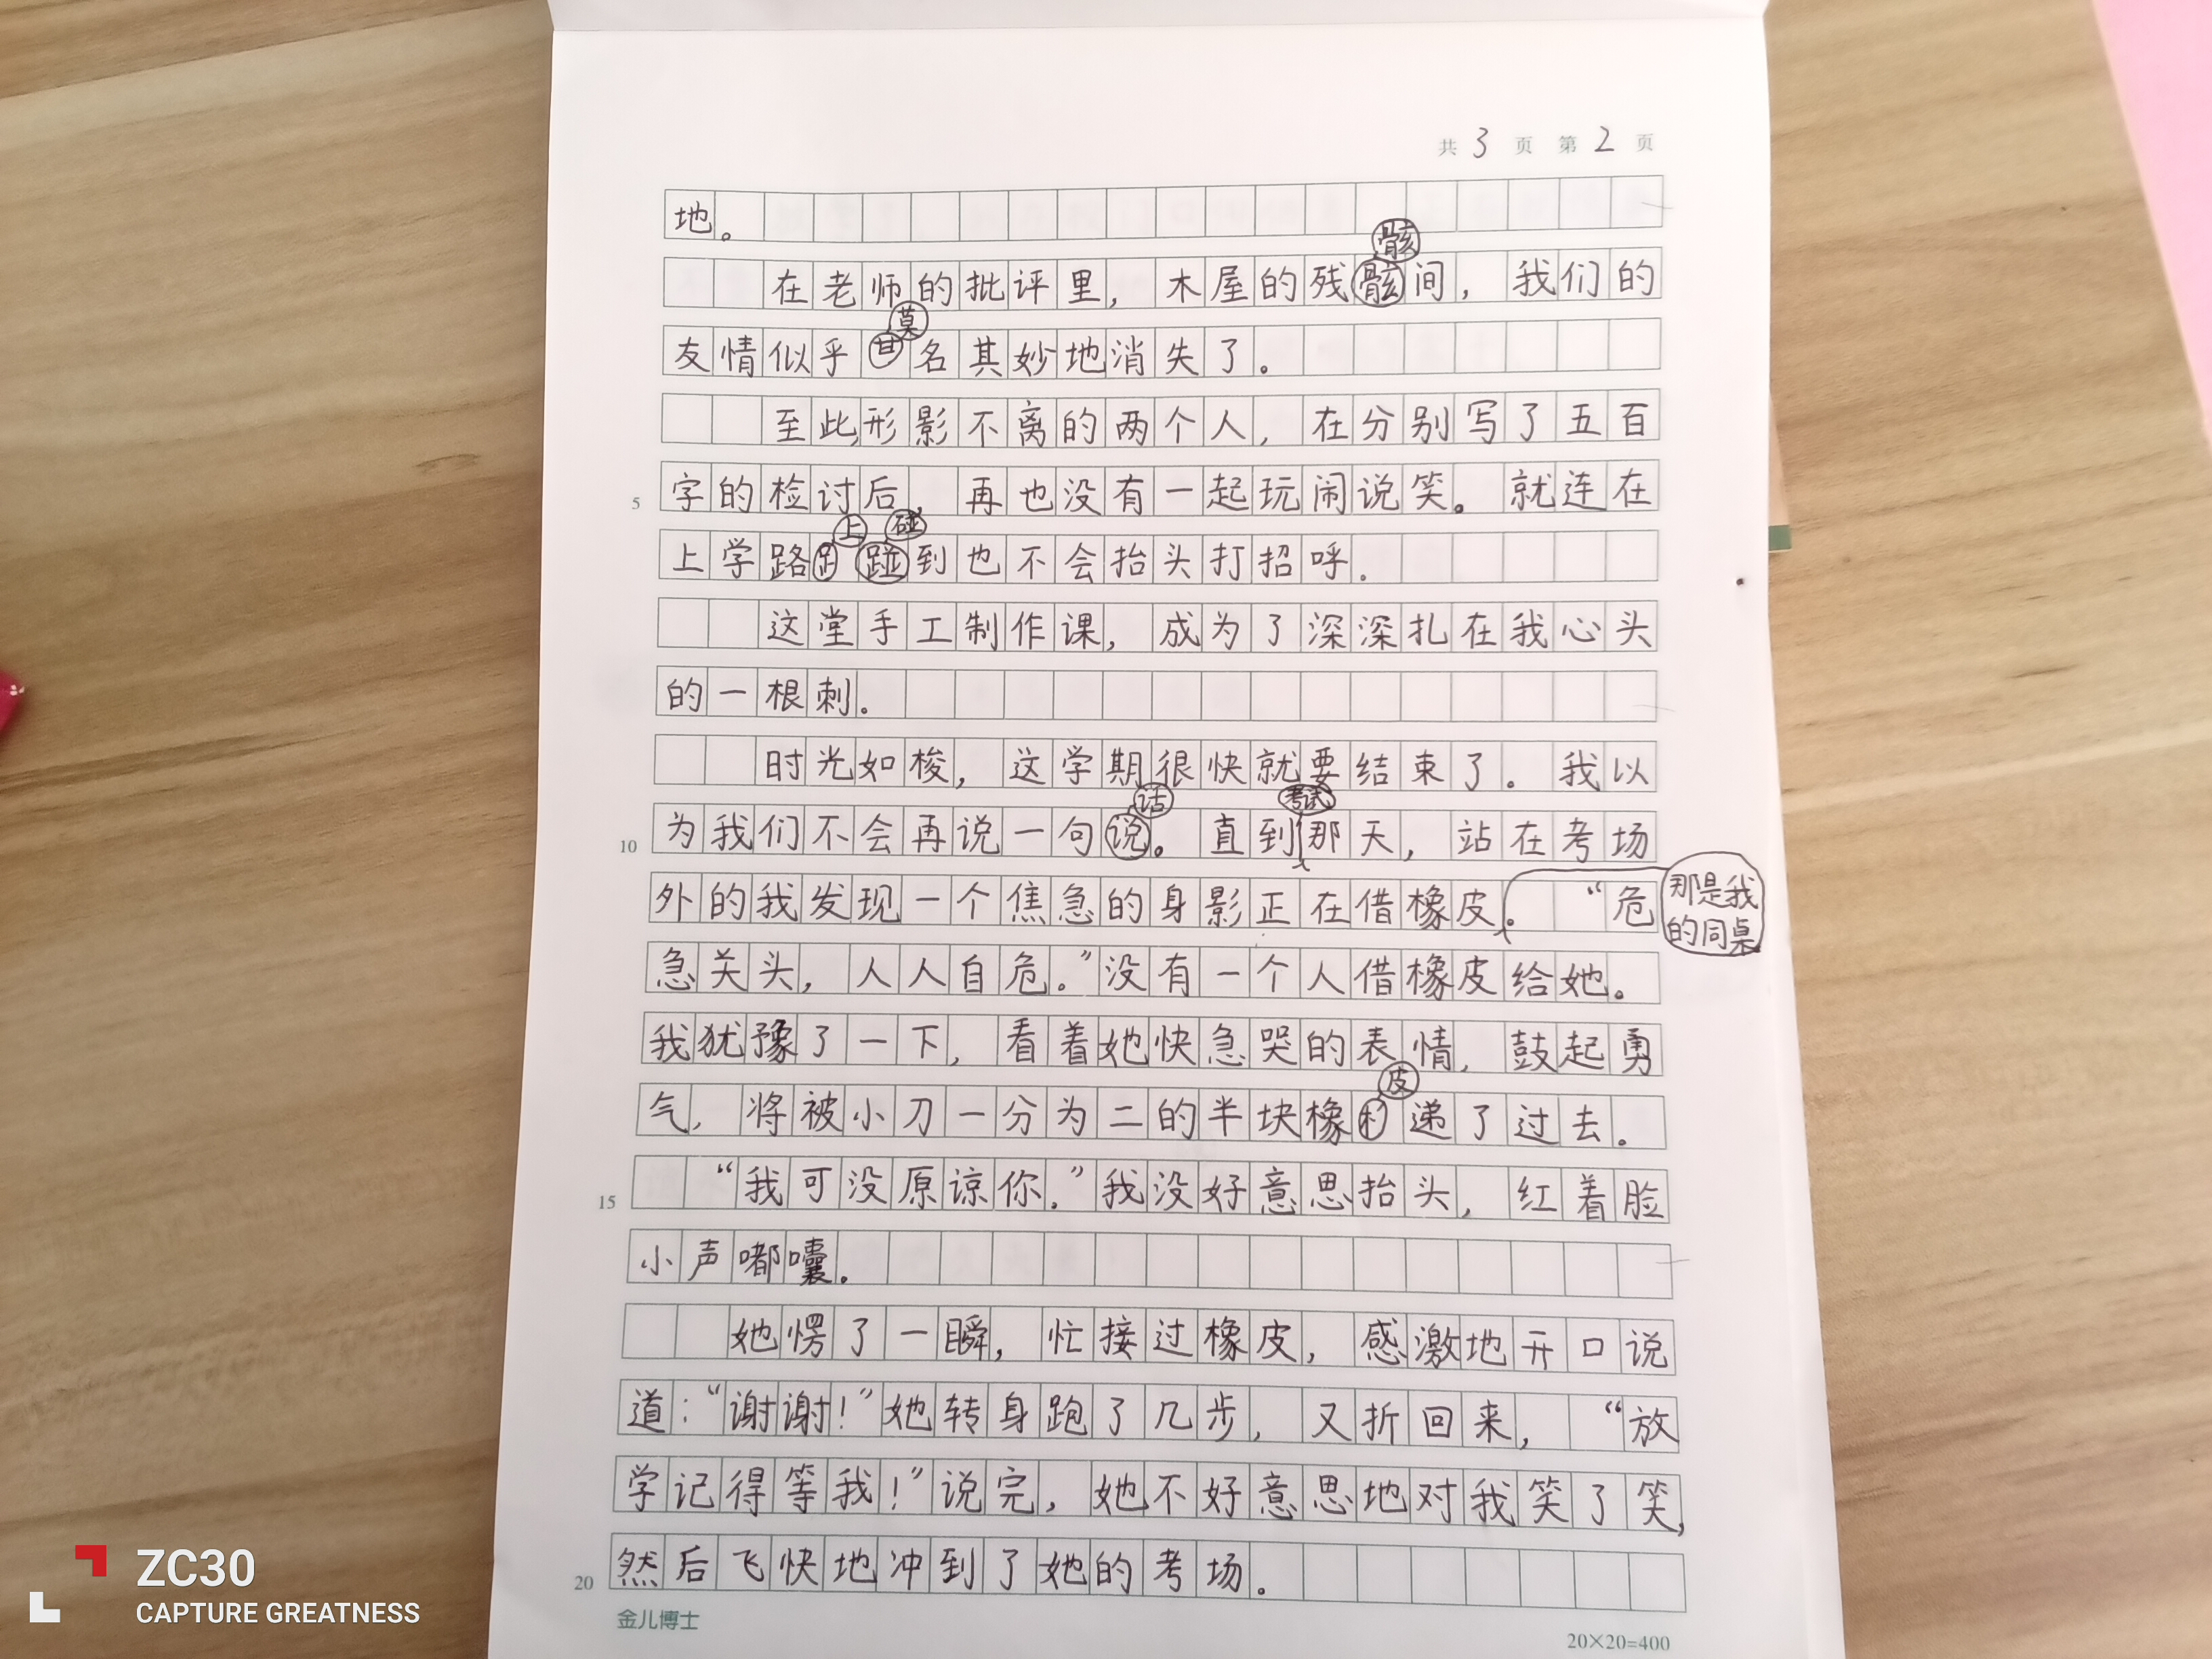 共 3 页 第 2 页
地。
骸
在老师的批评里，木屋的残骸间，我们的
莫
友情似乎名其妙地消失了。
至此形影不离的两个人，在分别写了五百
5 字的检讨后，再也没有一起玩闹说笑。就连在
上 碰
上学路到也不会抬头打招呼.
这堂手工制作课，成为了深深扎在我心头
的一根刺。
时光如梭，这学期很快就要结束了。我以
话 考试
10 为我们不会再说一句说。直到那天，站在考场
外的我发现一个焦急的身影正在借橡皮。“危
那是我
的同桌
急关头，人人自危。”没有一个人借橡皮给她。
我犹豫了一下，看着她快急哭的表情，鼓起勇
皮
气，将被小刀一分为二的半块橡递了过去。
15 “我可没原谅你.”我没好意思抬头，红着脸
小声嘟囔。
她愣了一瞬，忙接过橡皮，感激地开口说
道：“谢谢！”她转身跑了几步，又折回来，“放
学记得等我！”说完，她不好意思地对我笑了笑，
20 然后飞快地冲到了她的考场。
金儿博士
20×20=400
ZC30
CAPTURE GREATNESS